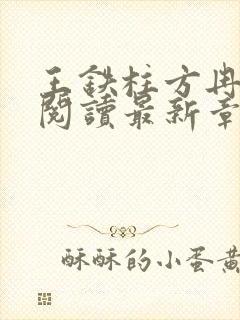 王鉄柱方冉
閱讀最新章
酥酥的小蛋黄